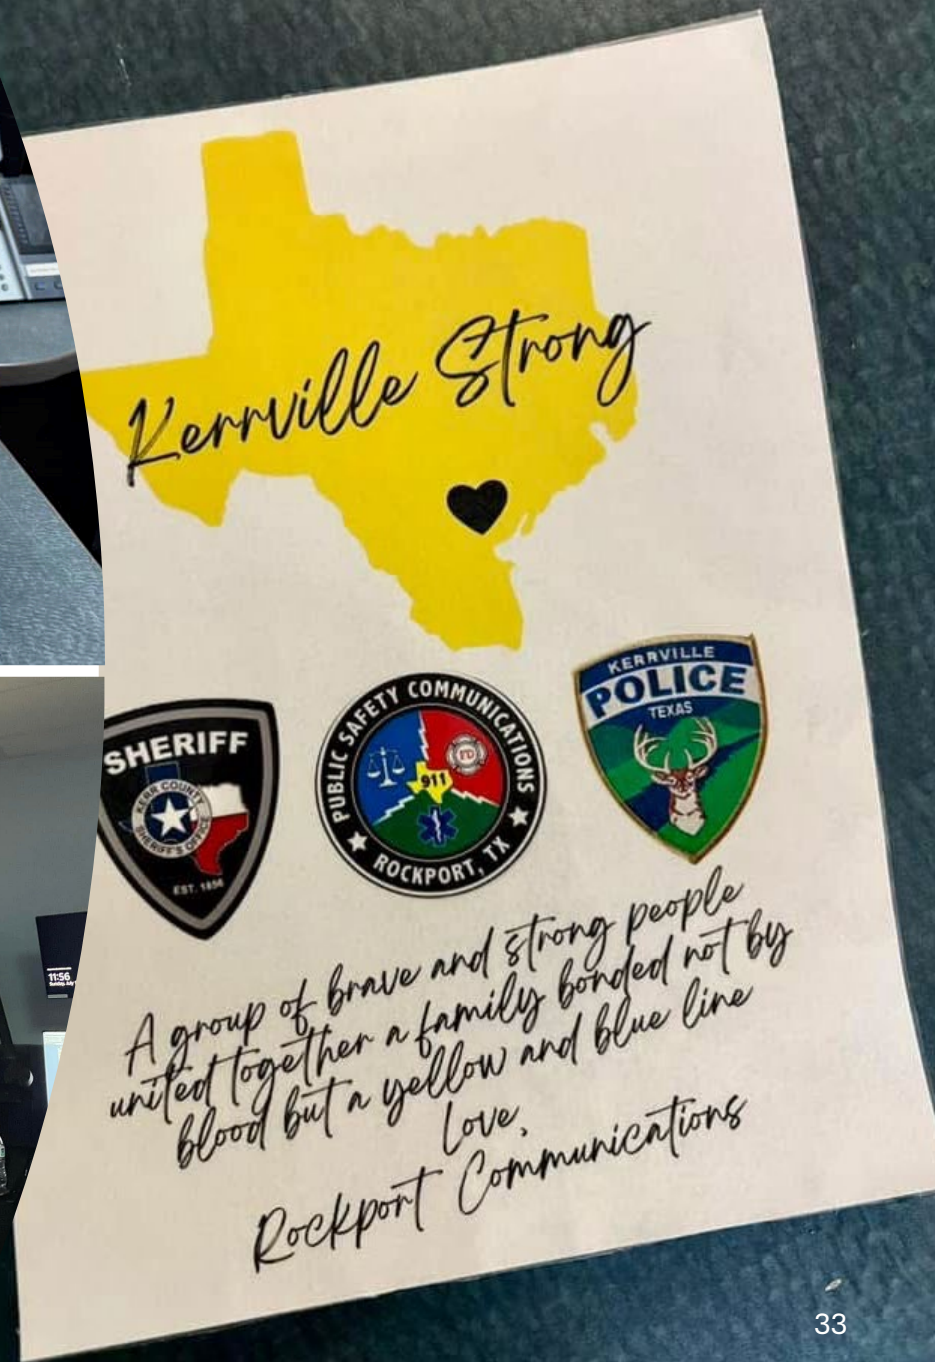 Kerrville Strong
SHERIFF
KERR COUNTY
SHERIFF'S OFFICE
EST. 1856
PUBLIC SAFETY COMMUNICATIONS
FD
911
ROCKPORT, TX
KERRVILLE
POLICE
TEXAS
A group of brave and strong people
united together a family bonded not by
blood but a yellow and blue line
Love,
Rockport Communications
11:56
33